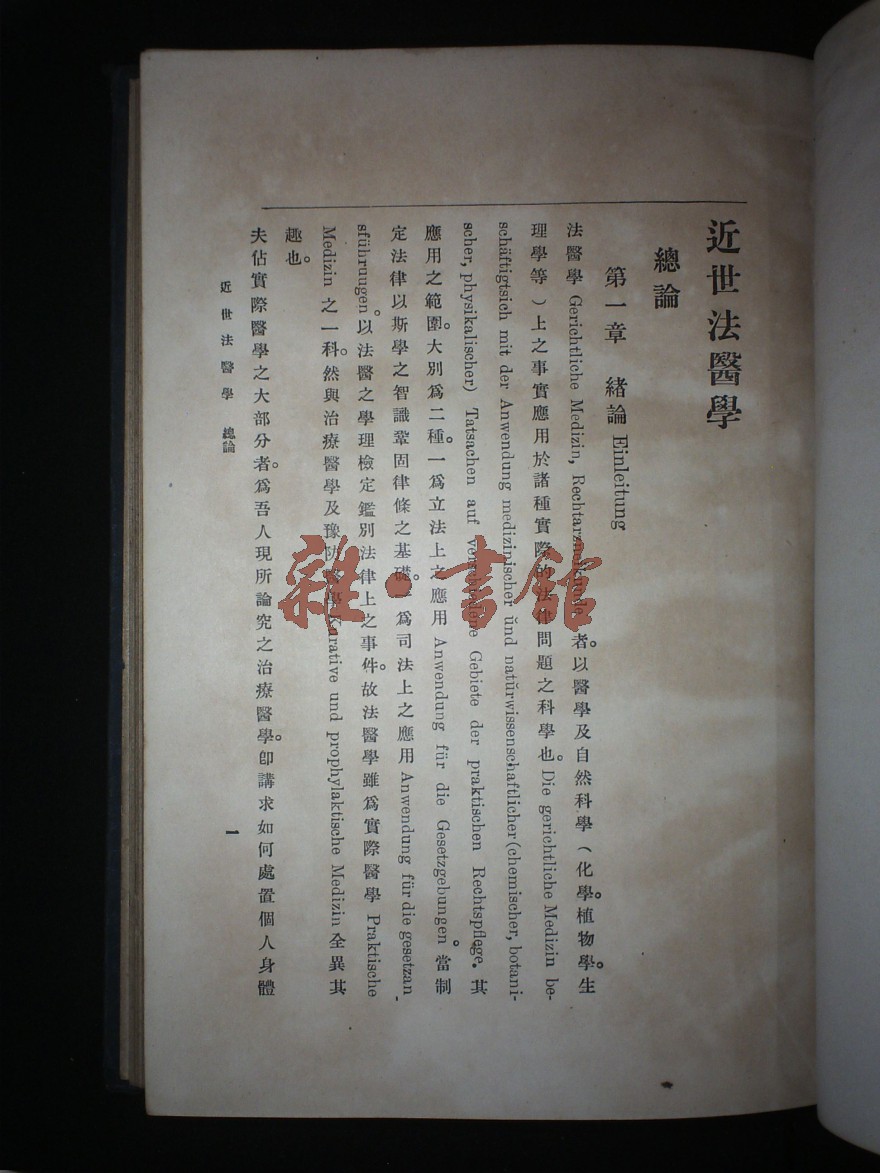 近世法醫學
總論
第一章 緒論 Einleitung
法醫學 Gerichtliche Medizin, Rechtarzneikunde 者。以醫學及自然科學（化學。植物學。生
理學等）上之事實應用於諸種實際的法律問題之科學也。Die gerichtliche Medizin be-
schäftigtsich mit der Anwendung medizinischer ŭnd natŭrwissenschaftlicher (chemischer, botani-
scher, physikalischer) Tatsachen auf verschiedene Gebiete der praktischen Rechtspflege. 其
應用之範圍。大別爲二種。一爲立法上之應用 Anwendung für die Gesetzgebungen。當制
定法律以斯學之智識鞏固律條之基礎。爲司法上之應用 Anwendung für die gesetzan
sführuugen。以法醫之學理檢定鑑別法律上之事件。故法醫學雖爲實際醫學 Praktische
Medizin 之一科。然與治療醫學及豫防醫學 Kurative und prophylaktische Medizin 全異其
趣也。
夫佔實際醫學之大部分者。爲吾人現所論究之治療醫學。卽講求如何處置個人身體
近世法醫學 總論
一
雜·書館